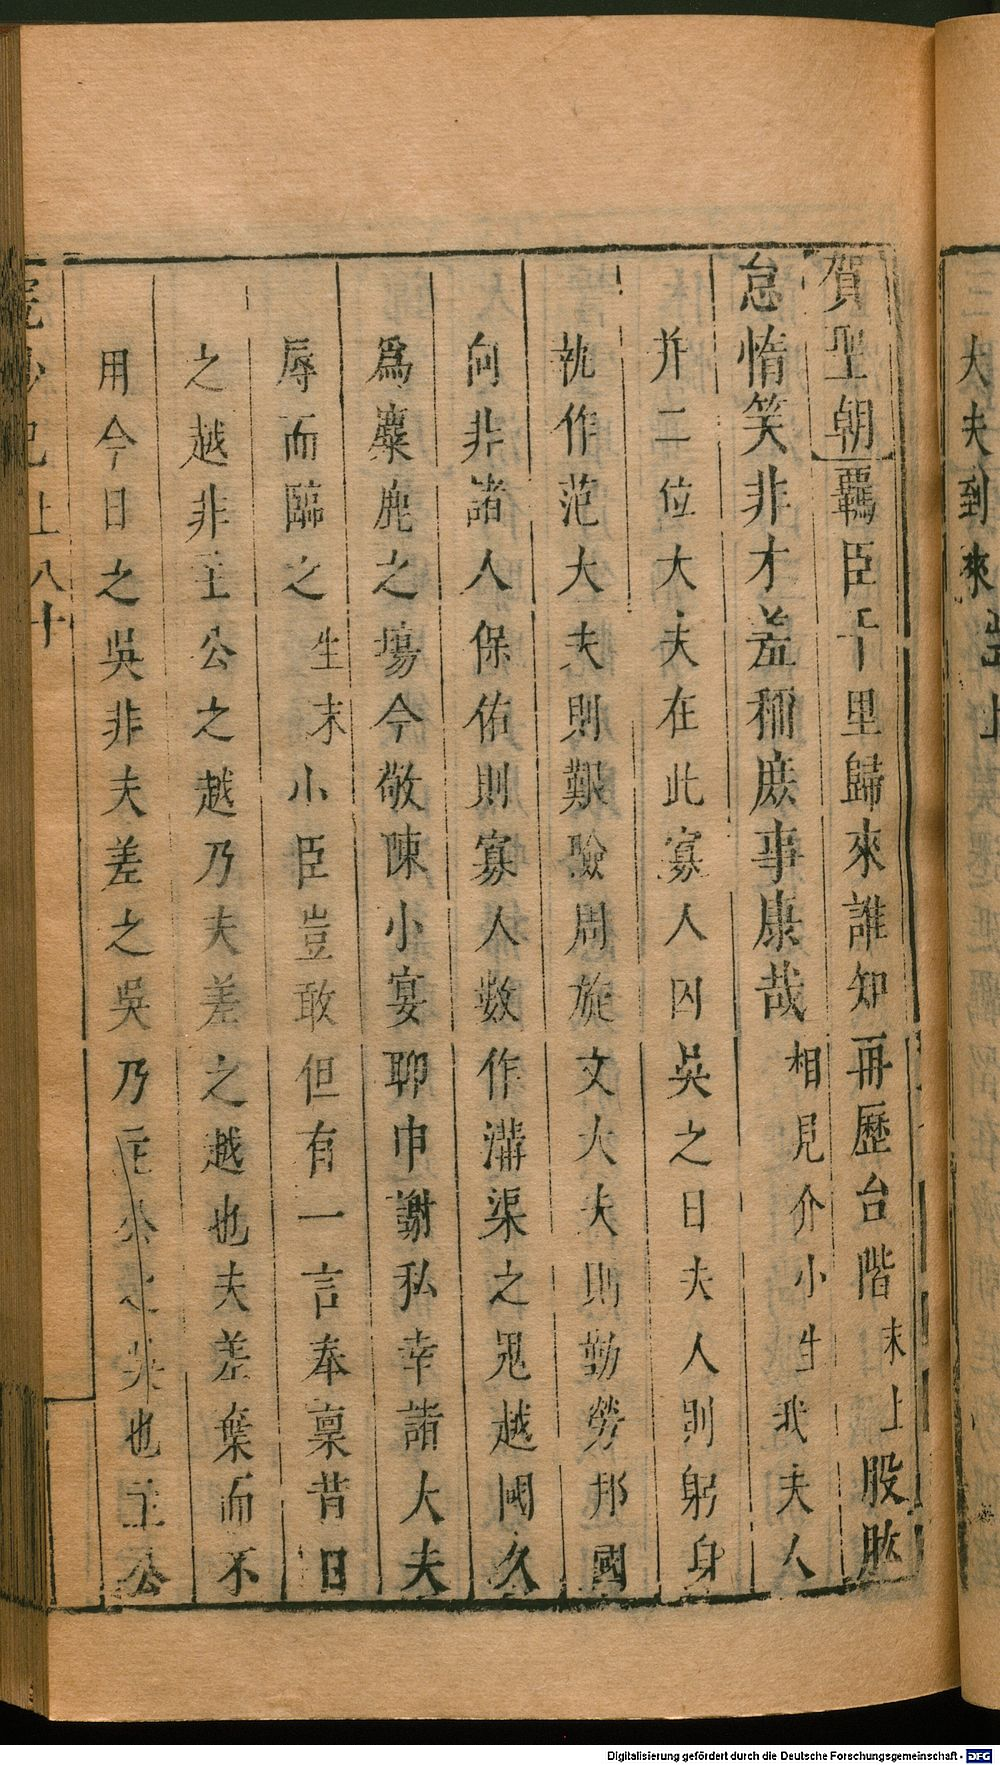 大夫到來
賀聖朝羈臣千里歸來誰知再歷台階末上股肱
怠惰笑非才羞稱庶事康哉相見介小生我夫人
并二位大夫在此寡人囚吳之日夫人則躬身
執作范大夫則艱險周旋文大夫則勤勞邦國
向非諸人保佑則寡人數作溝渠之鬼越國久
爲麋鹿之場今敬陳小宴聊申謝私幸諸大夫
辱而臨之生末小臣豈敢但有一言奉稟昔日
之越非主公之越乃夫差之越也夫差棄而不
用今日之吳非夫差之吳乃主公之吳也主公
浣紗記上八十
Digitalisierung gefördert durch die Deutsche Forschungsgemeinschaft - DFG